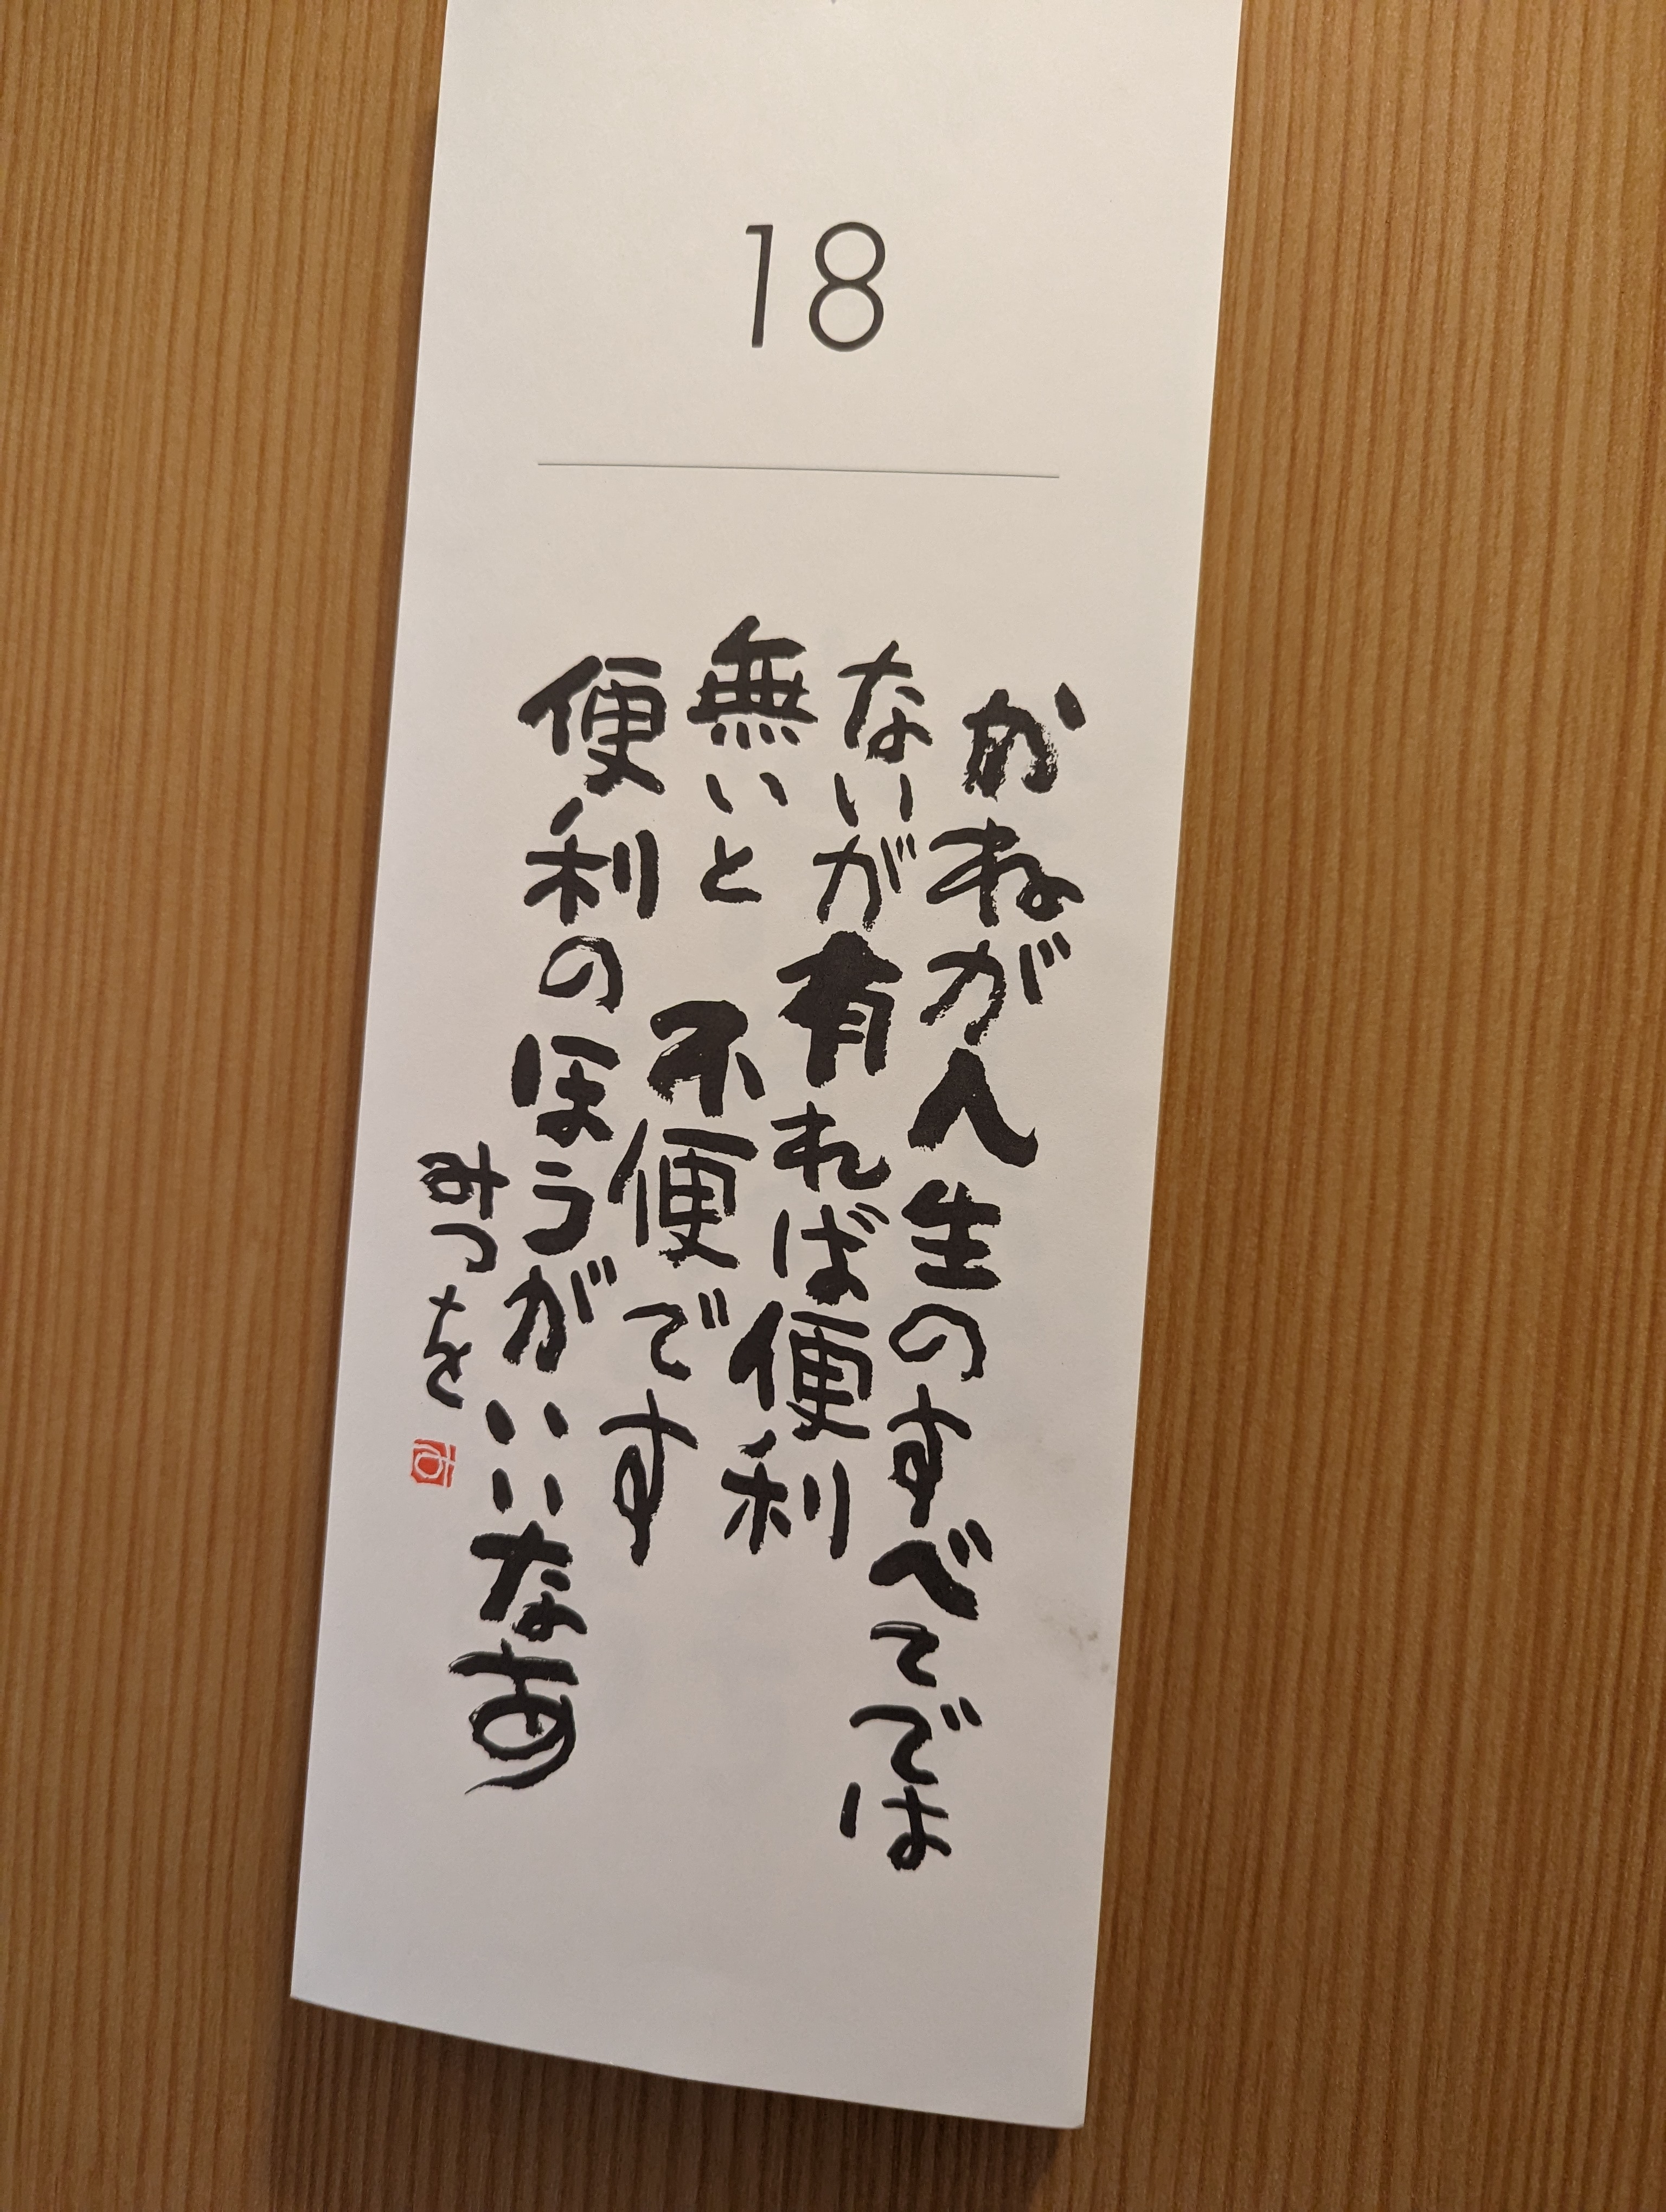 18
かねが人生のすべてでは
ないが有れば便利
無いと不便です
便利のほうがいいなあ
みつを